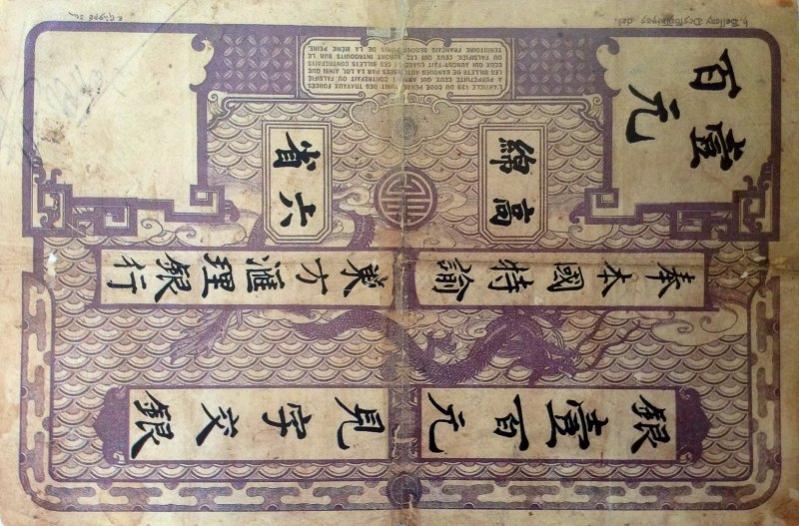 壹百元
高綿
六省
奉本國特諭
東方滙理銀行
銀壹百元
見字交銀
L'ARTICLE 139 DU CODE PENAL PUNIT DES TRAVAUX FORCES
A PERPETUITE CEUX QUI ONT CONTREFAIT OU FALSIFIÉ
LES BILLETS DE BANQUES AUTORISÉES PAR LA LOI, AINSI QUE
CEUX QUI AURONT FAIT USAGE DE CES BILLETS CONTREFAITS
OU FALSIFIÉS, CEUX QUI LES AURONT INTRODUITS SUR LE
TERRITOIRE FRANÇAIS SERONT PUNIS DE LA MÊME PEINE.